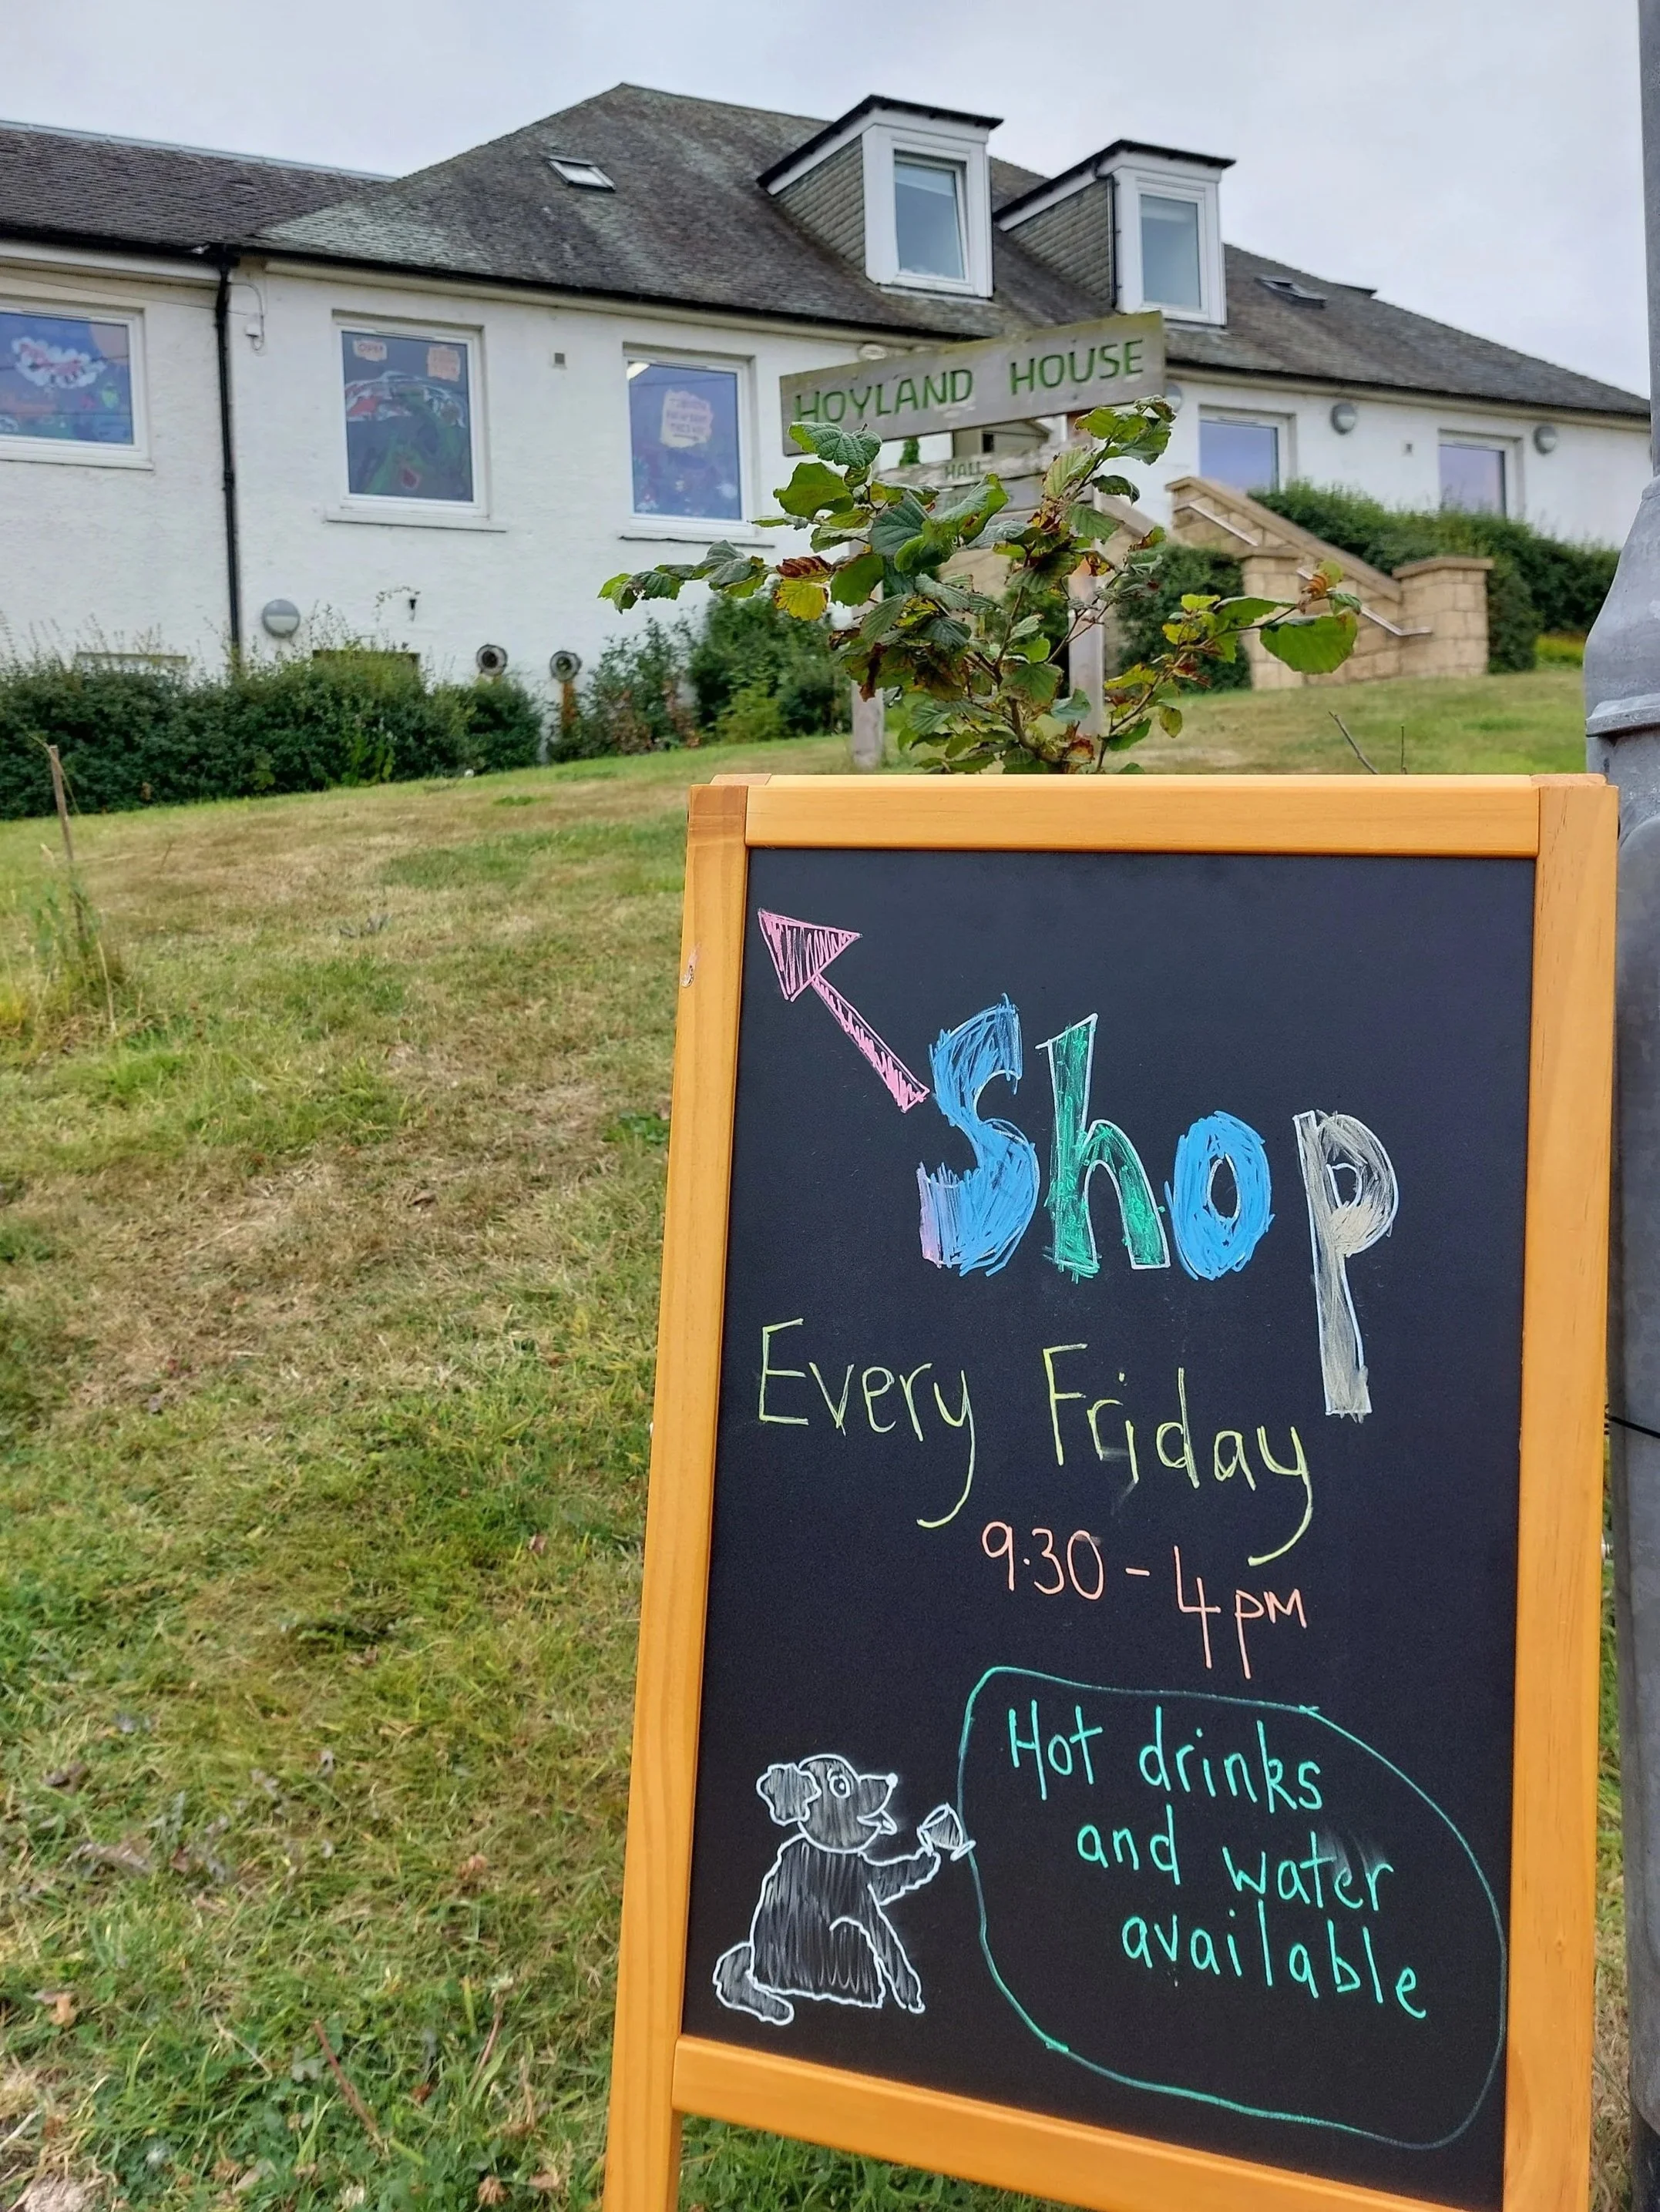 HOYLAND HOUSE
HALL
Shop
Every Friday
9.30 - 4pm
Hot drinks
and water
available